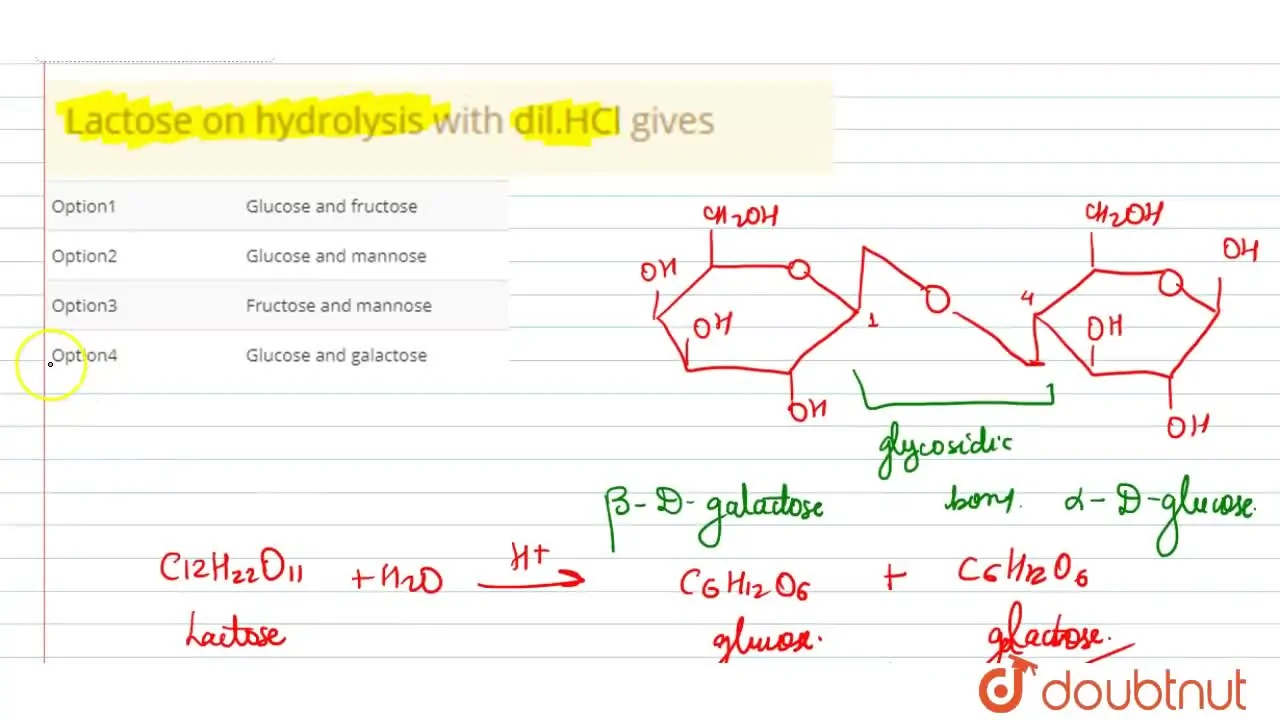 Lactose on hydrolysis with dil.HCl gives
Option1 Glucose and fructose
Option2 Glucose and mannose
Option3 Fructose and mannose
Option4 Glucose and galactose
CH2OH CH2OH
OH
OH O O
O
4
1
OH OH
OH
OH
glycosidic
bond.
β-D-galactose
α-D-glucose.
C12H22O11 + H2O H+ C6H12O6 + C6H12O6
Lactose glucose. galactose.
doubtnut